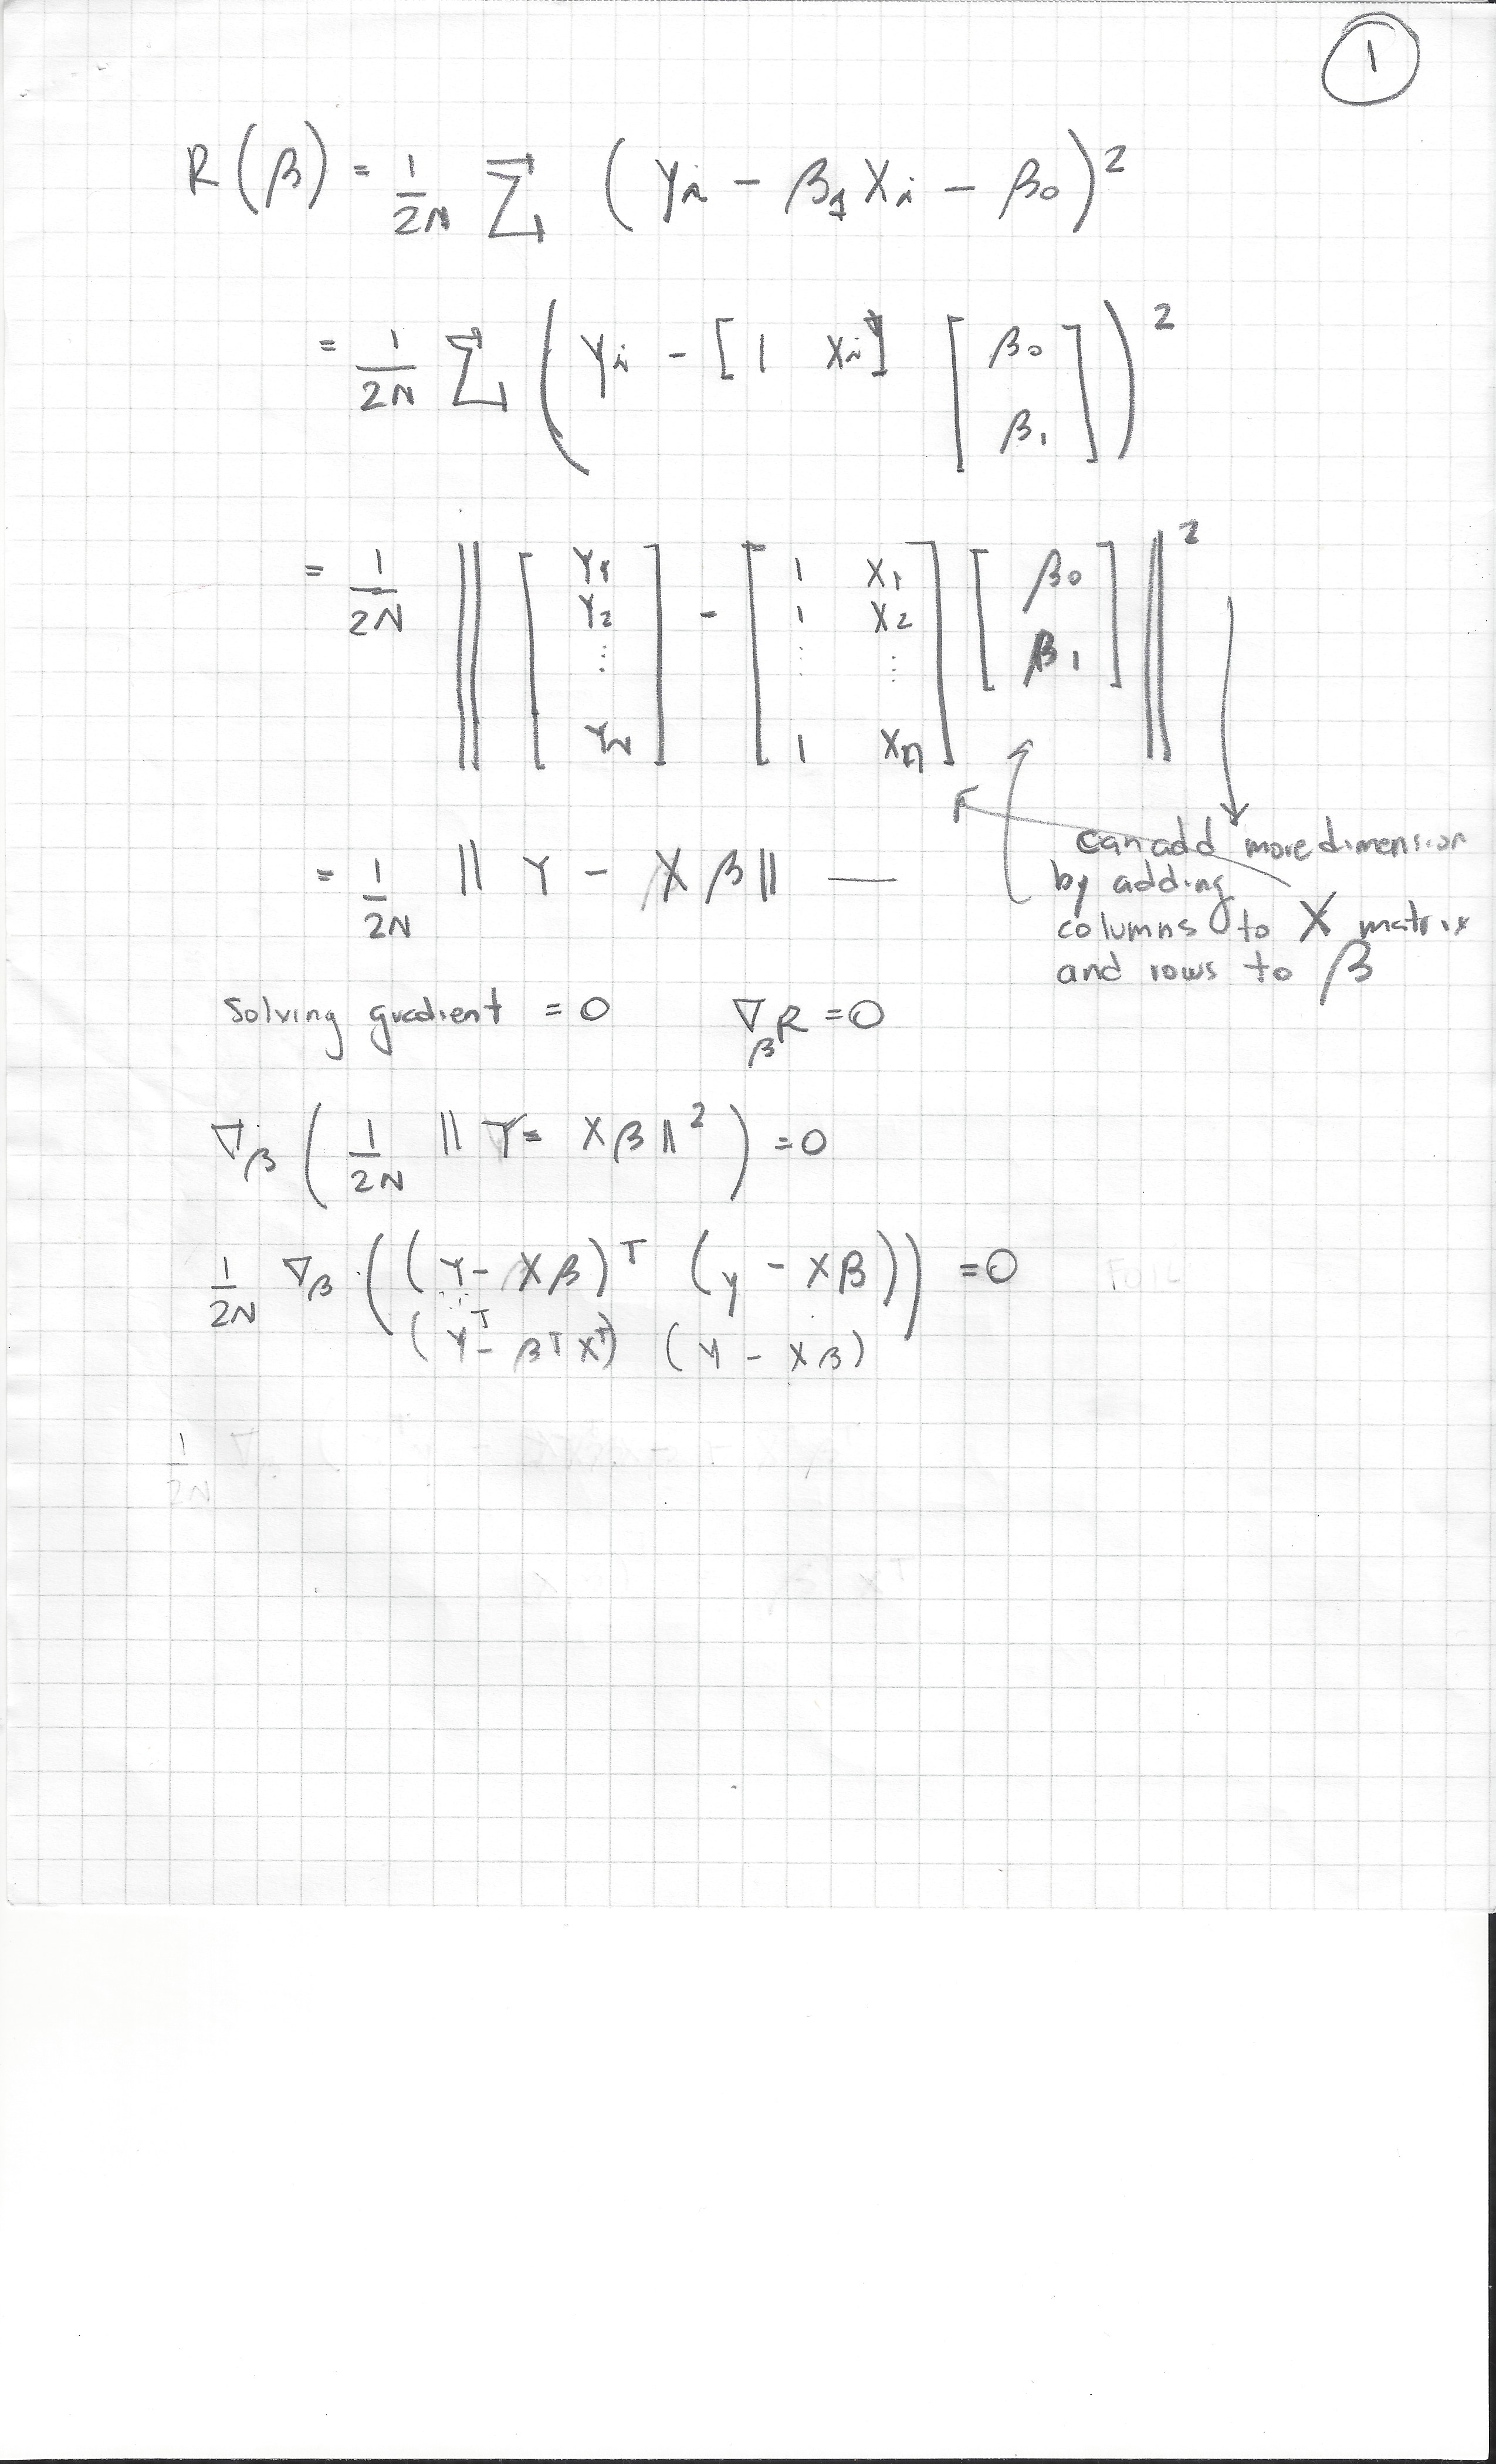 1
R(β) = 1/2N Σ (Yi - β1 Xi - β0)²
= 1/2N Σ (Yi - [1 Xi] [β0 β1])²
= 1/2N || [Y1 Y2 ⋮ YN] - [1 X1 1 X2 ⋮ ⋮ 1 Xn] [β0 β1] ||²
= 1/2N || Y - Xβ || —
can add more dimension
by adding
columns to X matrix
and rows to β
Solving gradient = 0 ∇β R = 0
∇β (1/2N || Y - Xβ ||²) = 0
1/2N ∇β ((Y - Xβ)ᵀ (y - Xβ)) = 0
(Yᵀ - βᵀXᵀ) (Y - Xβ)
1/2N